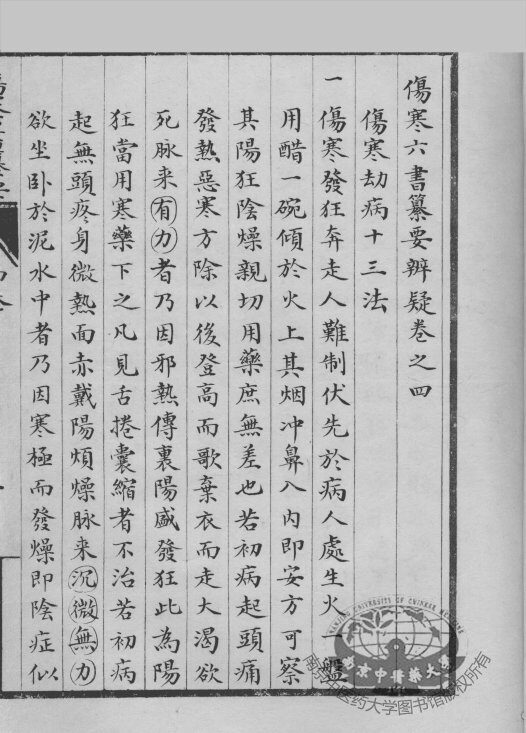 傷寒六書纂要辨疑卷之四
傷寒劫病十三法
一傷寒發狂奔走人難制伏先於病人處生火一盤
用醋一碗傾於火上其烟冲鼻入内即安方可察
其陽狂陰燥親切用藥庶無差也若初病起頭痛
發熱惡寒方除以後登高而歌棄衣而走大渴欲
死脉來有力者乃因邪熱傳裏陽盛發狂此為陽
狂當用寒藥下之凡見舌捲囊縮者不治若初病
起無頭疼身微熱面赤戴陽煩燥脉來沉微無力
欲坐卧於泥水中者乃因寒極而發燥即陰症似
NANJING UNIVERSITY OF CHINESE MEDICINE
南京中醫藥大學
南京中医药大学图书馆版权所有